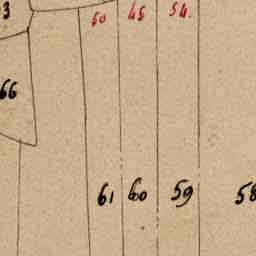 3
50 45 54.
66
61 60 59 58